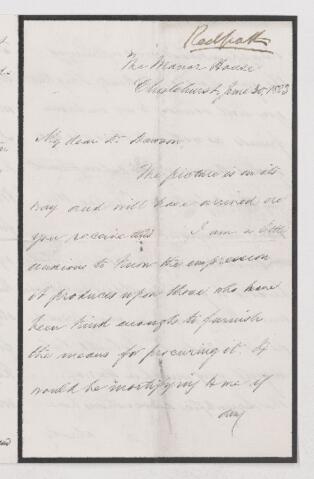 Redpath
The Manor House
Chislehurst, June 30, 1883
My dear Dr Dawson
The picture is on its
way and will have arrived ere
you receive this I am a little
anxious to know the impression
it produces upon those who have
been kind enough to furnish
the means for procuring it. It
would be mortifying to me if
any